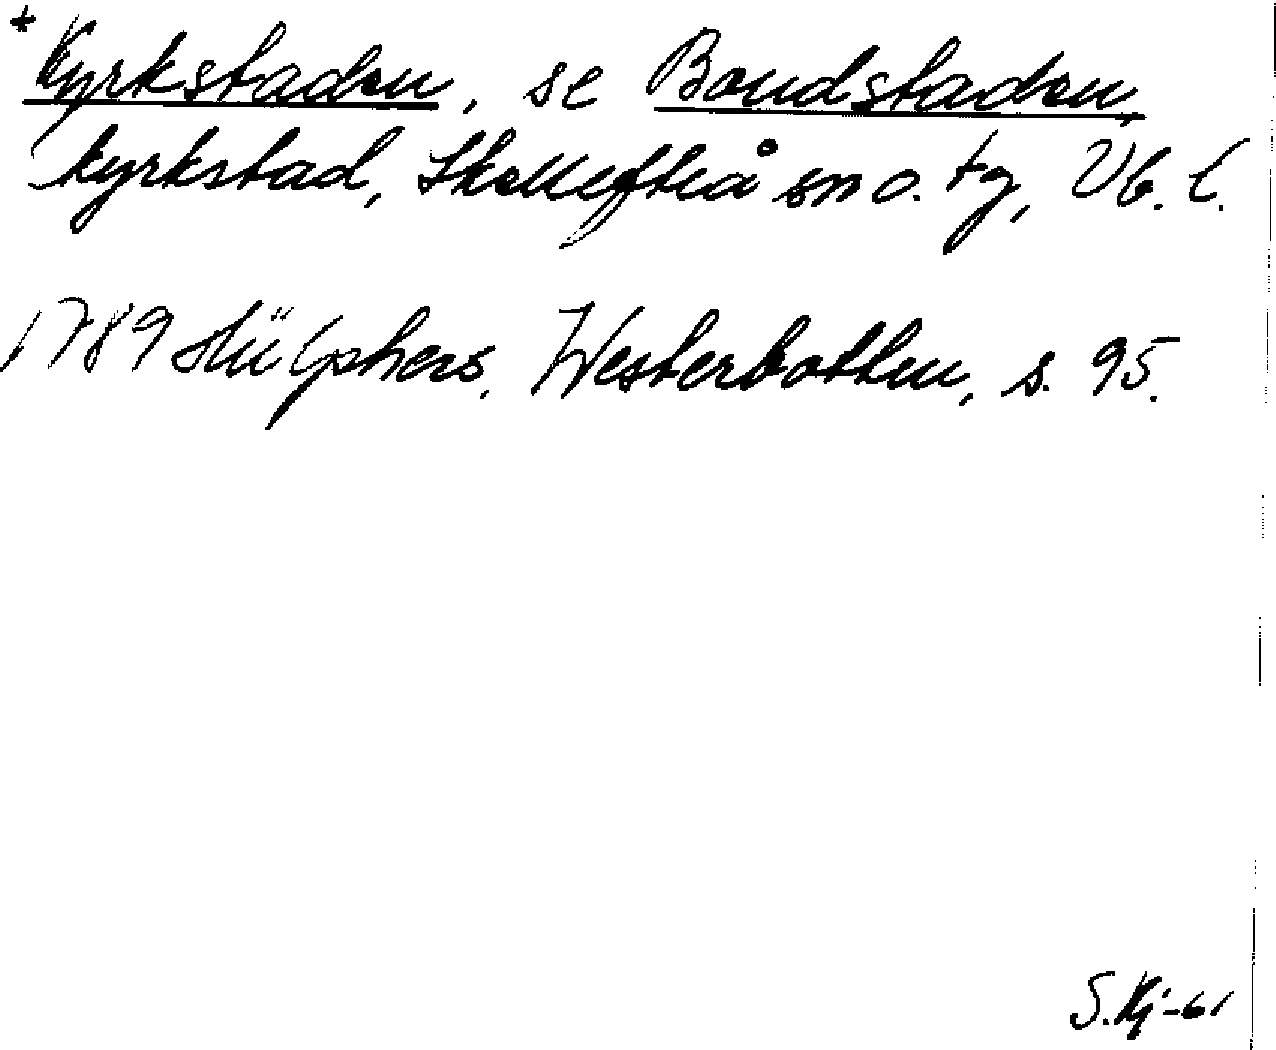 + Kyrkstaden, se Bondstaden,
kyrkstad, Skellefteå sn o. tg, Vb. l.
1789 Hülphers, Westerbotten, s. 95.
S.Kj-61